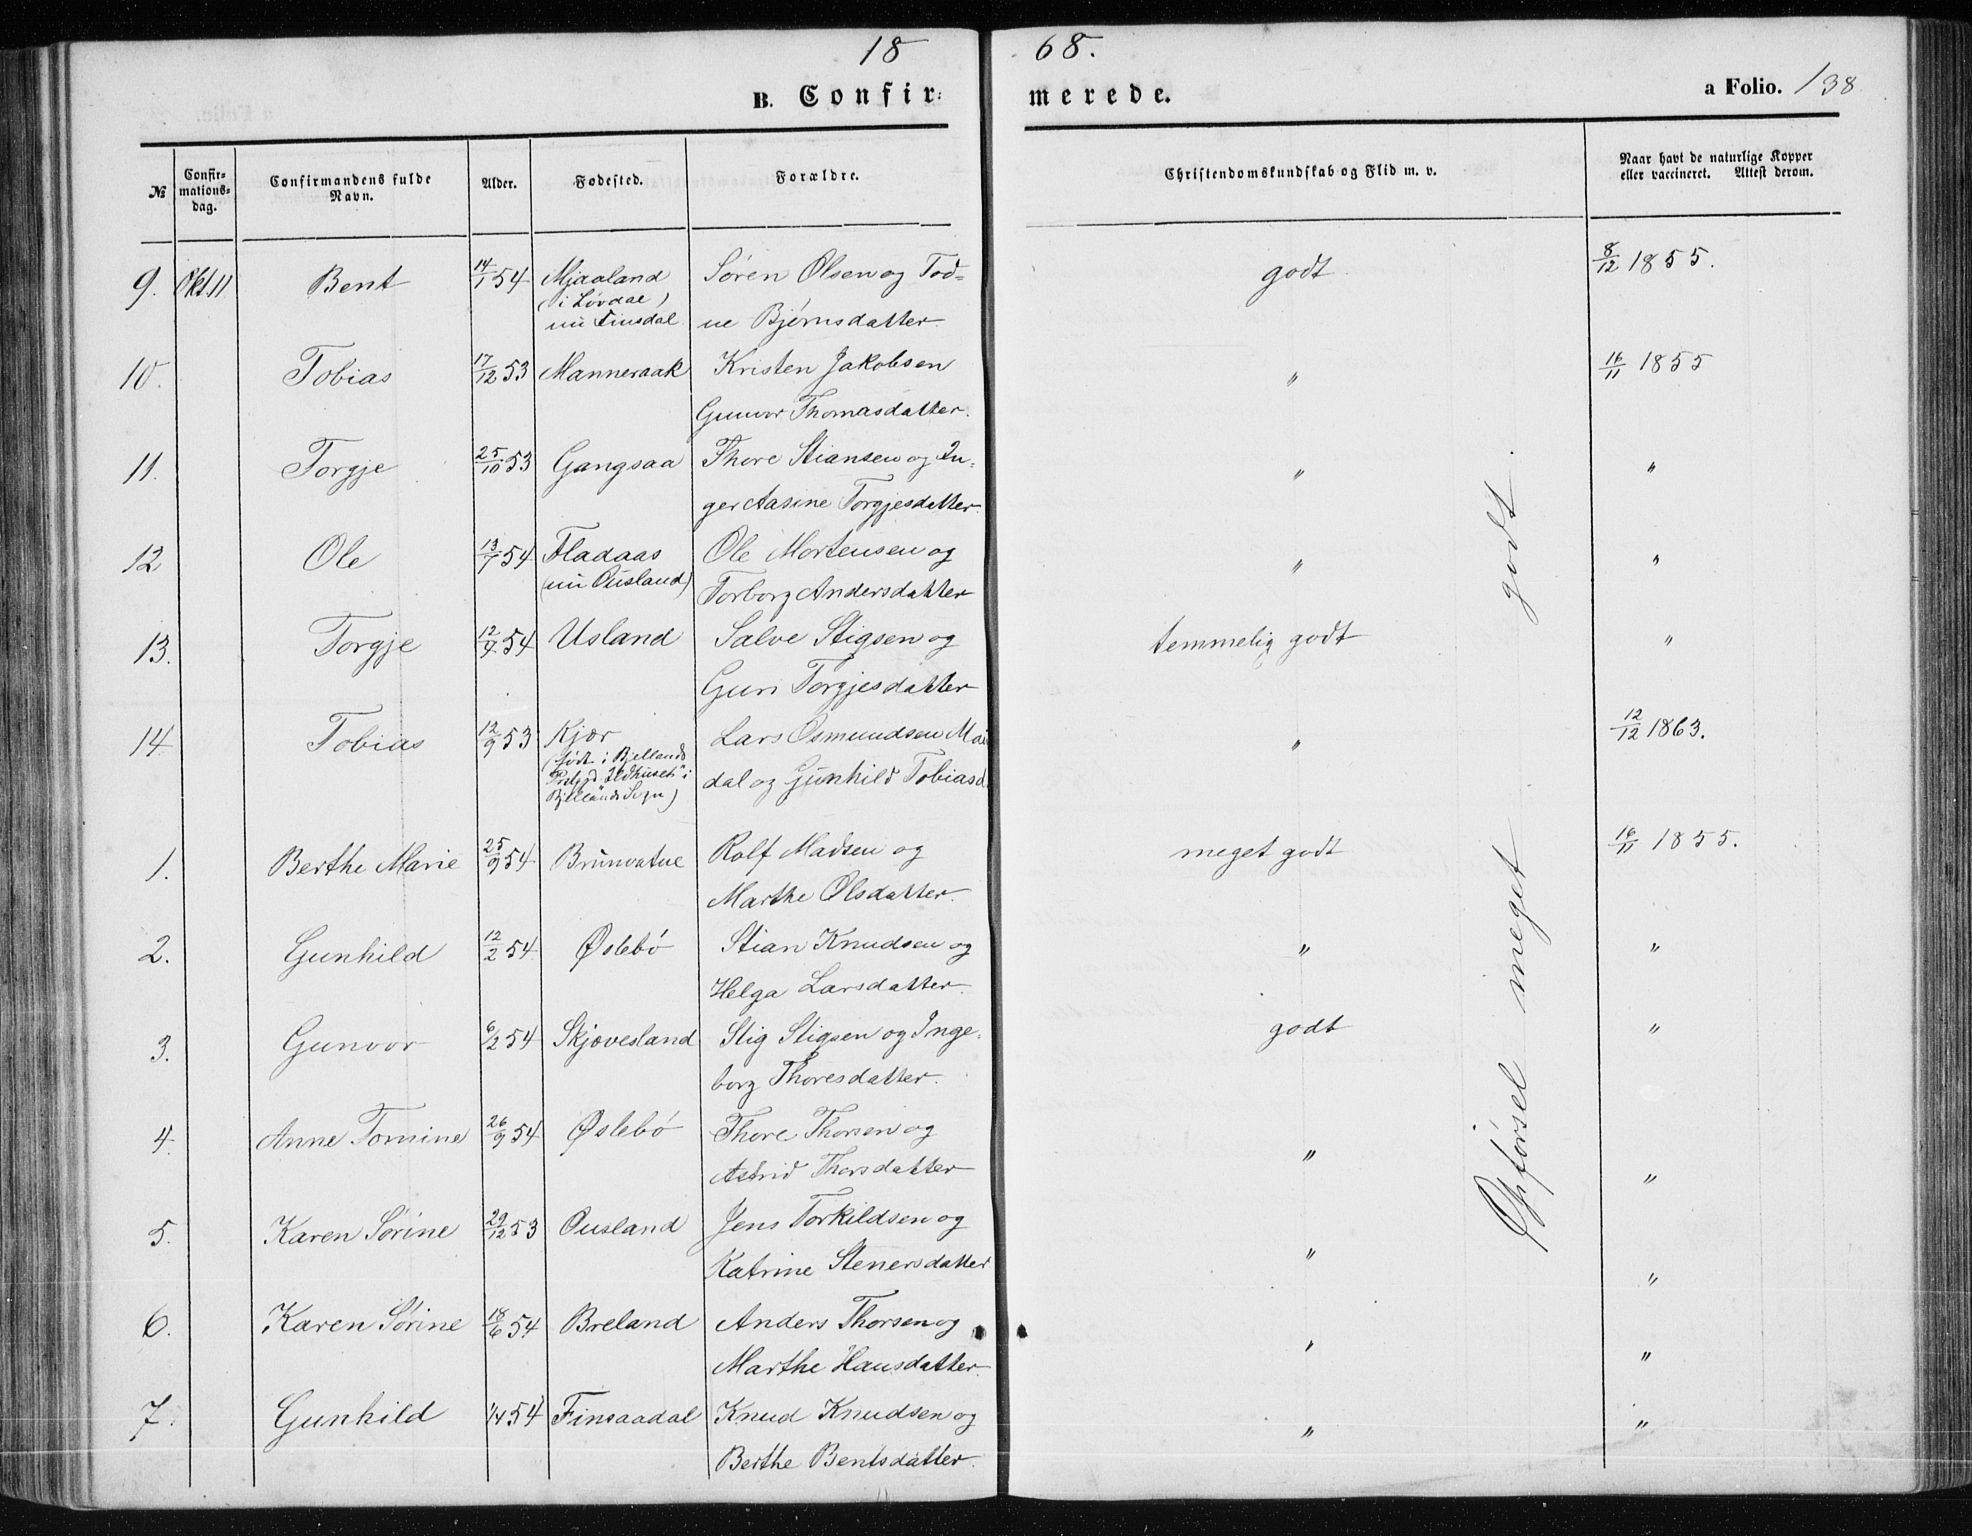 18 68.
B. Confir: merede. a Folio. 138
№ Confir-mations-dag. Confirmandens fulde Navn. Alder. Fødested. Forældre. Christendomskundskab og Flid m. v. Naar havt de naturlige Kopper eller vaccineret. Attest derom.
9. Okt. 11 Bent 14/1 54 Mjaaland Søren Olsen og Tod= godt 8/12 1855.
(i Løvdal)
nu Finsdal ne Bjørnsdatter.
10. Tobias 17/12 53 Manneraak Kristen Jakobsen " 16/11 1855
Gunvor Thomasdatter.
11. Torgje 25/10 53 Gangsaa Thore Stiansen og In= " "
ger Aasine Torgjesdatter
12 Ole 13/7 54 Fladaas Ole Mortensen og " "
(nu Ousland) Torborg Andersdatter
13. Torgje 12/9 54 Usland Salve Stigsen og temmelig godt "
Guri Torgjesdatter
14. Tobias 12/9 53 Kjær Lars Osmundsen " 12/12 1863.
(født i Bjellands
Prstgjd "Ildhuset" i dal og Gunhild Tobiasd.
Bjellands Sogn)
1. Berthe Marie 25/9 54 Brunvatne Rolf Madsen og meget godt 16/11 1855.
Marthe Olsdatter.
2. Gunhild 12/2 54 Øslebø Stian Knudsen og " "
Helga Larsdatter.
3. Gunvor 6/2 54 Skjævesland Stig Stigsen og Inge= godt "
borg Thoresdatter.
4. Anne Tomine 26/9 54 Øslebø Thore Thorsen og " "
Astrid Thorsdatter
5. Karen Sørine 29/12 53 Ousland Jens Torkildsen og " "
Katrine Stenersdatter
6. Karen Sørine 18/6 54 Breland Anders Thorsen og " "
Marthe Hansdatter.
7. Gunhild 1/4 54 Finsaadal Knud Knudsen og " "
Berthe Bentsdatter.
Opførsel meget godt.